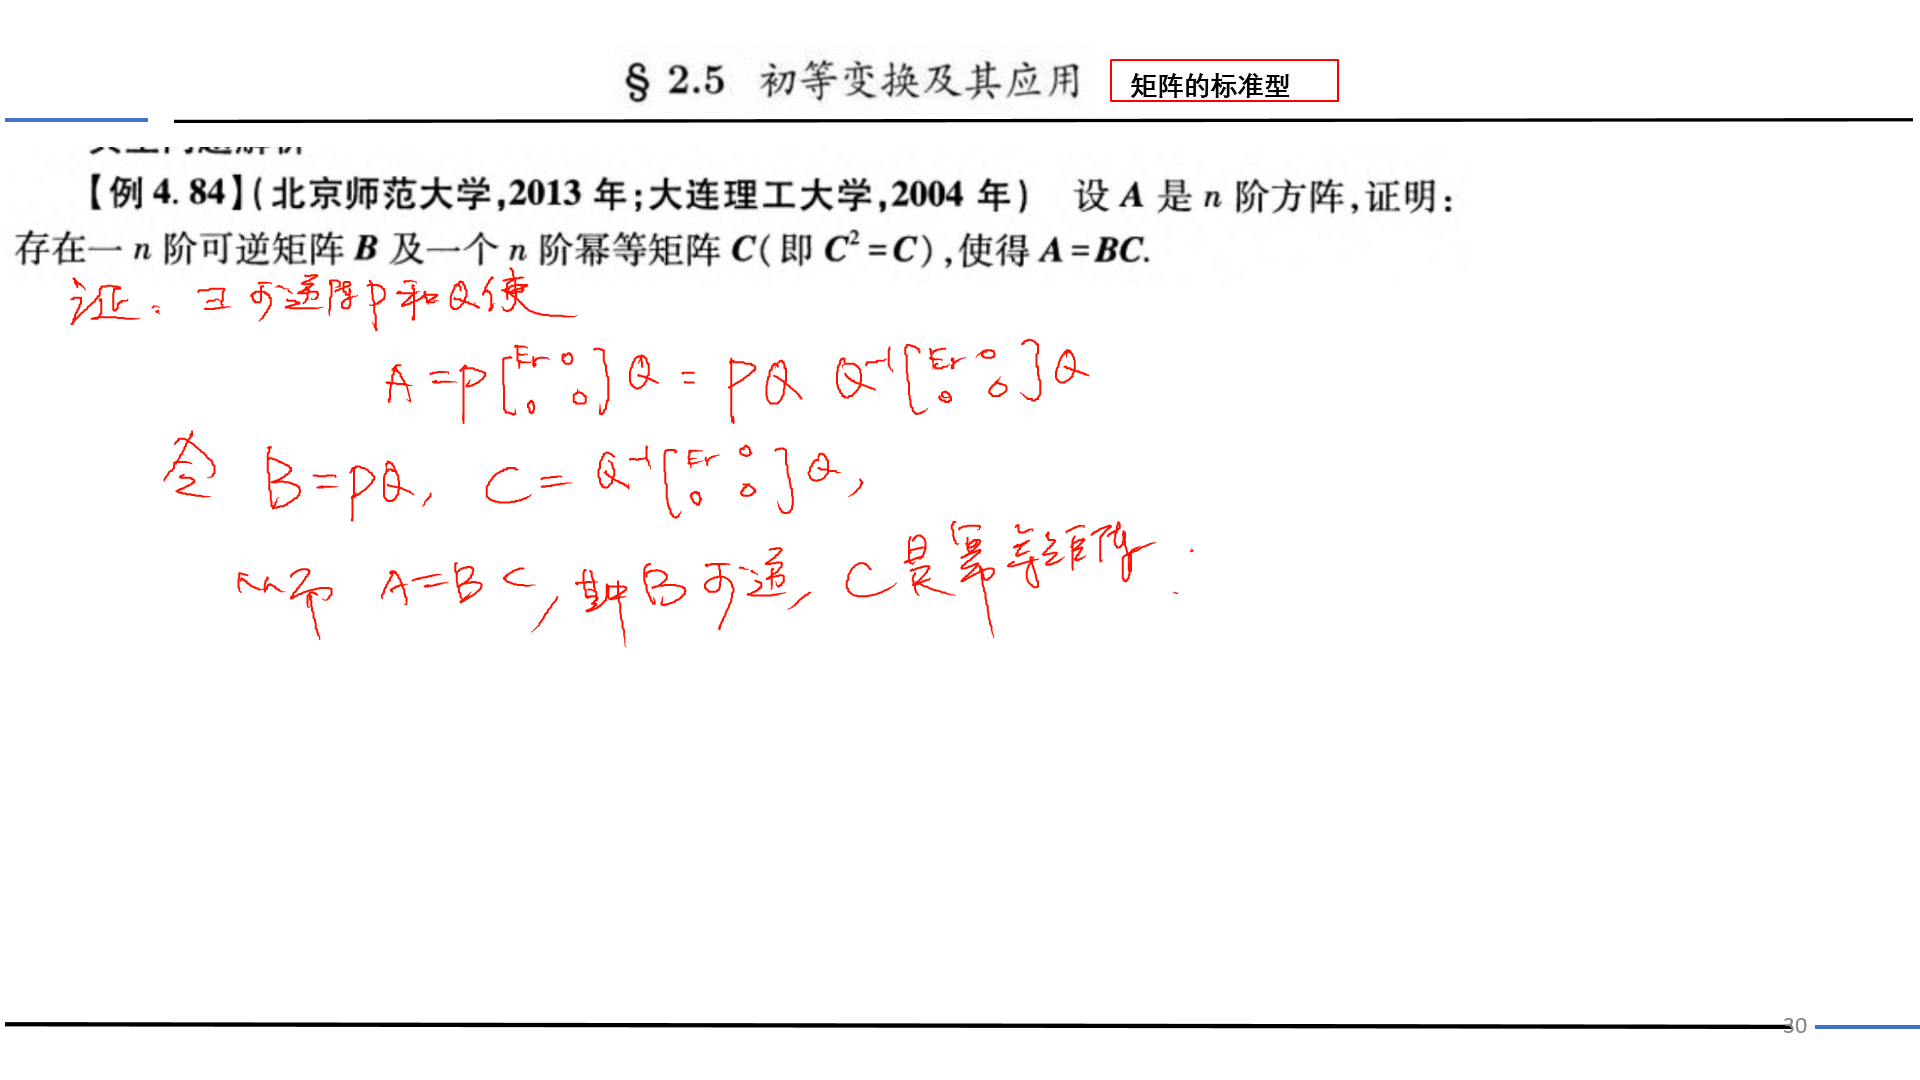 § 2.5 初等变换及其应用 矩阵的标准型
【例 4.84】(北京师范大学,2013 年;大连理工大学,2004 年) 设 A 是 n 阶方阵,证明:
存在一 n 阶可逆矩阵 B 及一个 n 阶幂等矩阵 C(即 C²=C),使得 A=BC.
证: ∃可逆阵P和Q使
A=P[Er 0 0 0]Q = PQ Q⁻¹[Er 0 0 0]Q
令 B=PQ, C=Q⁻¹[Er 0 0 0]Q,
A=BC, 其中B可逆, C是幂等矩阵.
30